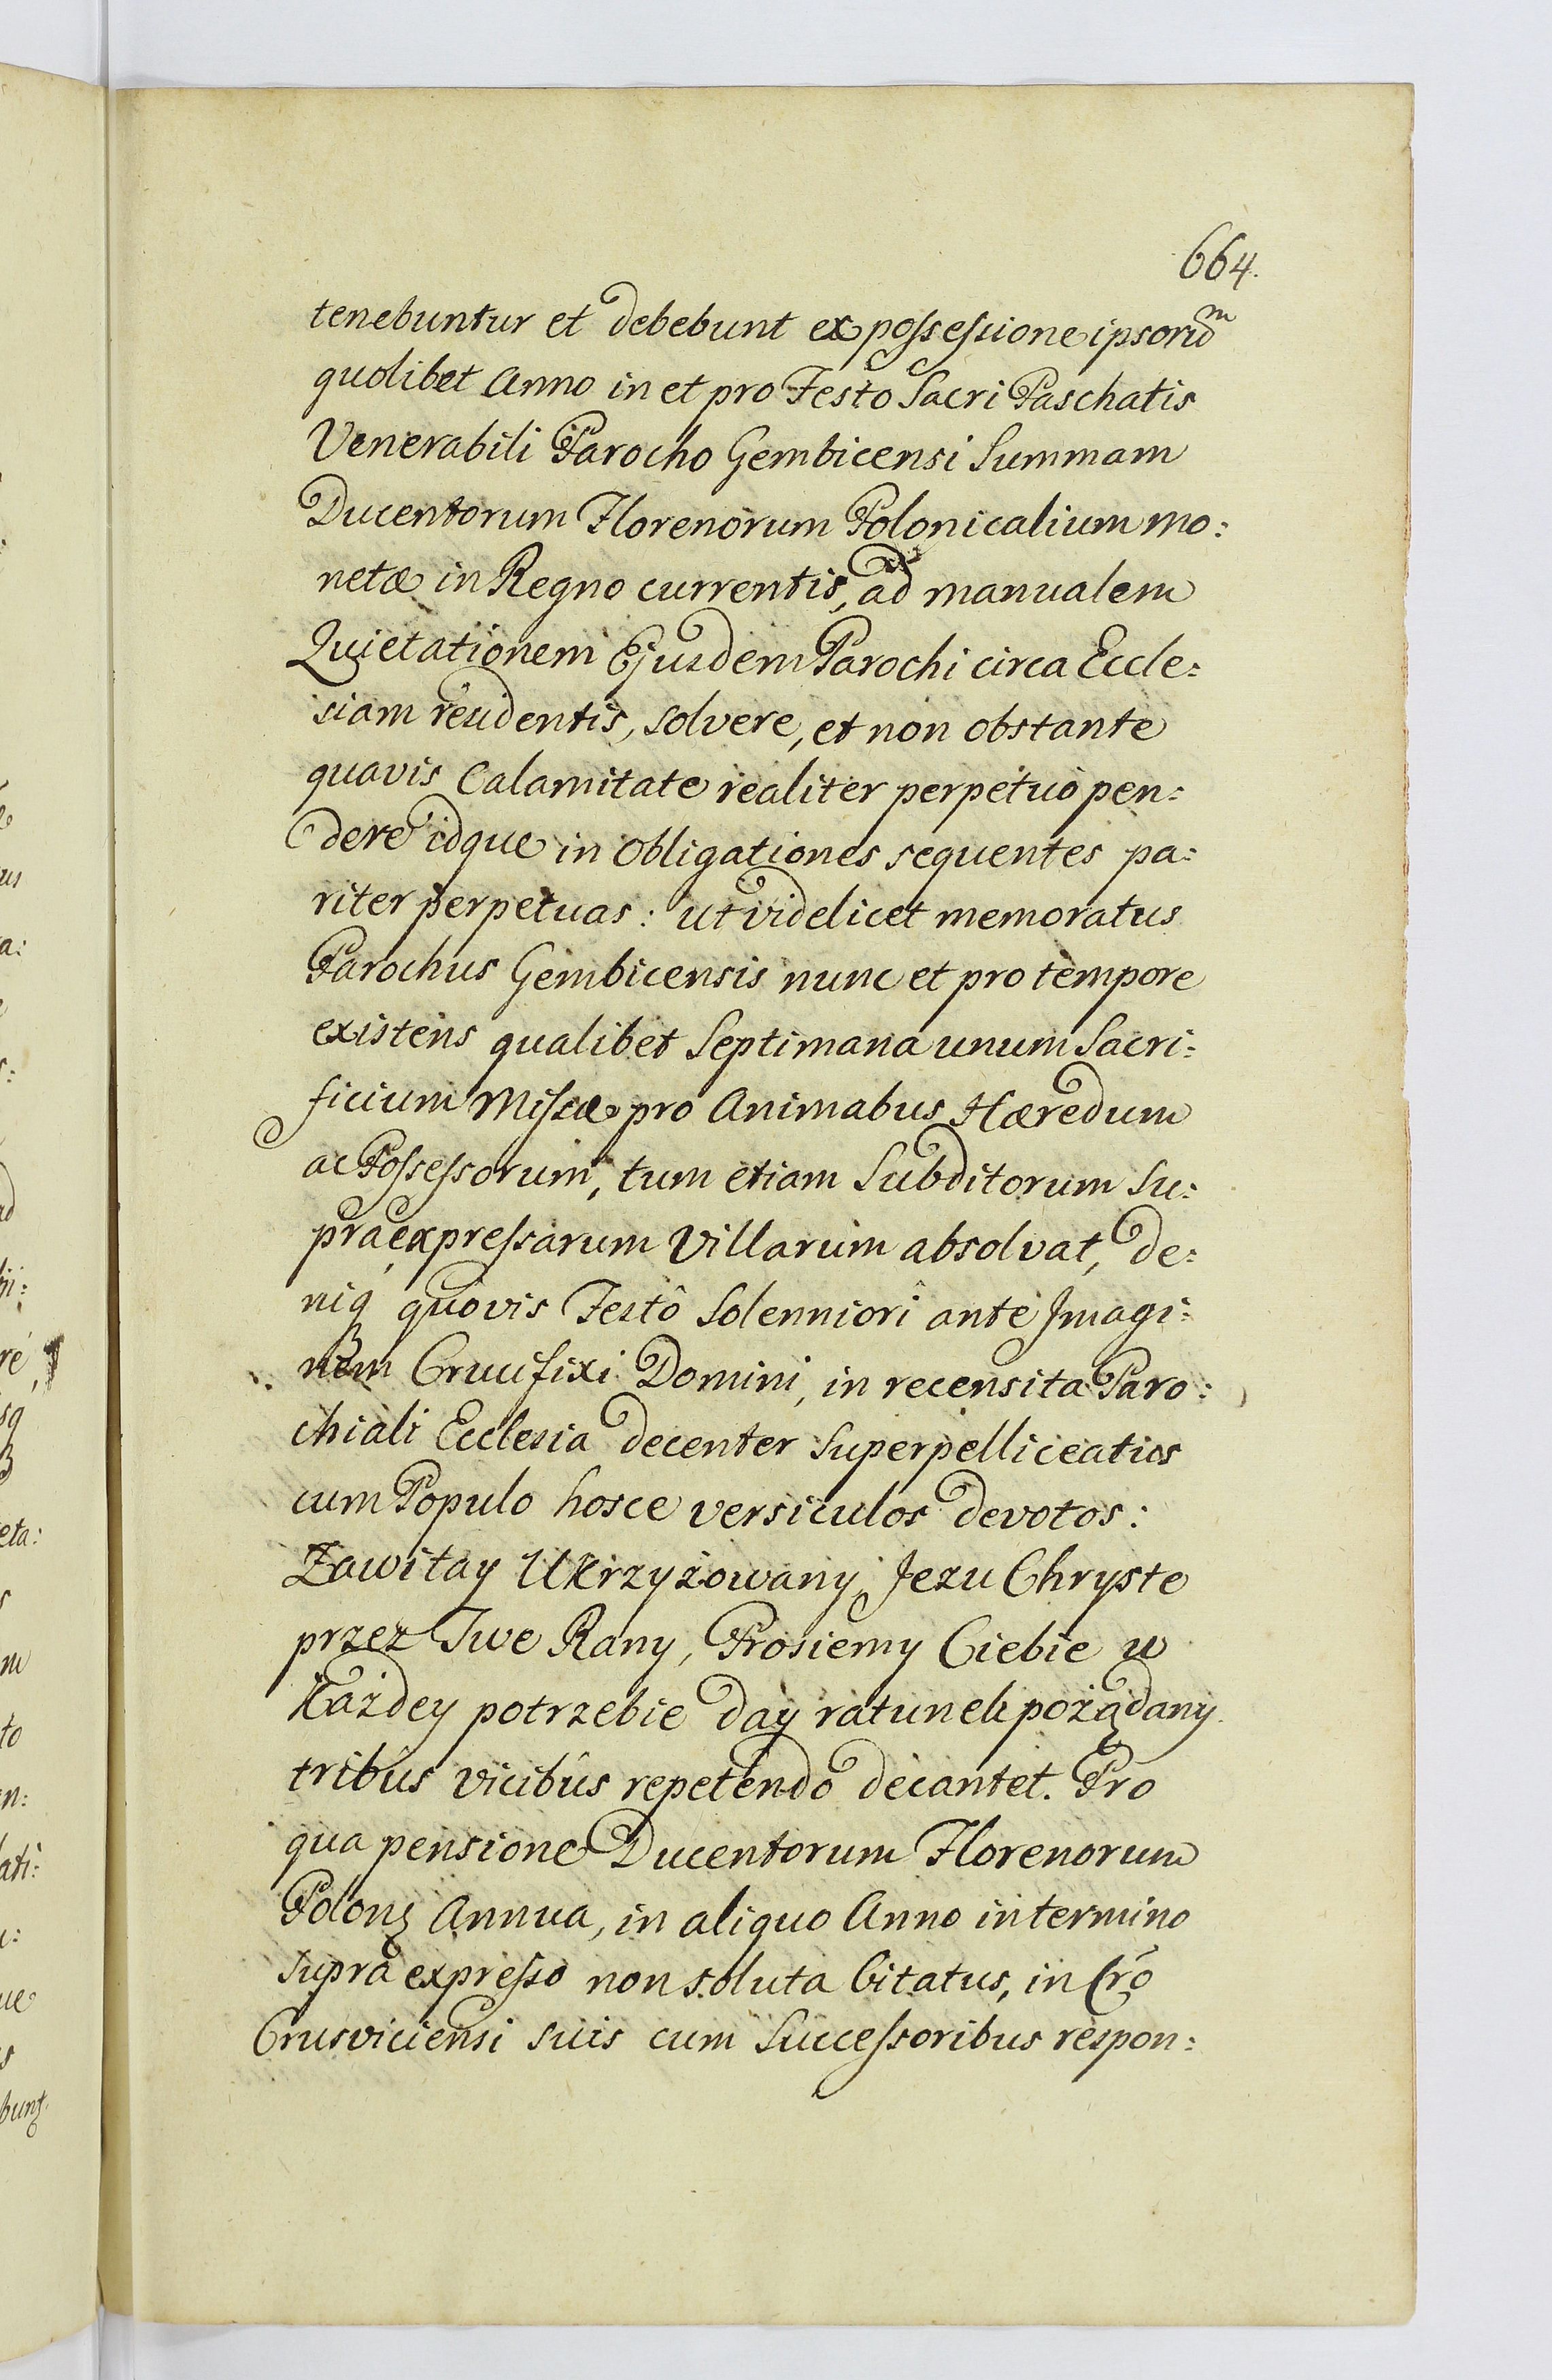 664.
tenebuntur et debebunt ex possessione ipsorum
quolibet Anno in et pro Festo Sacri Paschatis
Venerabili Parocho Gembicensi Summam
Ducentorum Florenorum Polonicalium mo:
netæ in Regno currentis, ad manualem
Quietationem Ejusdem Parochi circa Eccle:
siam residentis, solvere, et non obstante
quavis Calamitate realiter perpetuò pen:
dere idque in Obligationes sequentes pa:
riter perpetuas: ut videlicet memoratus
Parochus Gembicensis nunc et pro tempore
existens qualibet Septimana unum Sacri:
ficium Missæ pro Animabus Hæredum
ac Possessorum, tum etiam Subditorum Su:
praexpressarum Villarum absolvat, de:
niq quovis Festô Solenniorî ante Imagi:
nem Crucifixi Domini, in recensita Paro:
chiali Ecclesia decenter Superpelliceatus
cum Populo hosce versiculos devotos:
Zawitay Ukrzyżowany, Jezu Chryste
przez Twe Rany, Prosiemy Ciebie w
Każdey potrzebie day ratunek pożądany
tribus vicibus repetendo decantet. Pro
qua pensione Ducentorum Florenorum
Polonę Annua, in aliquo Anno in termino
supra expresso non soluta Citatus, in Cro
Crusviciensi suis cum Successoribus respon: